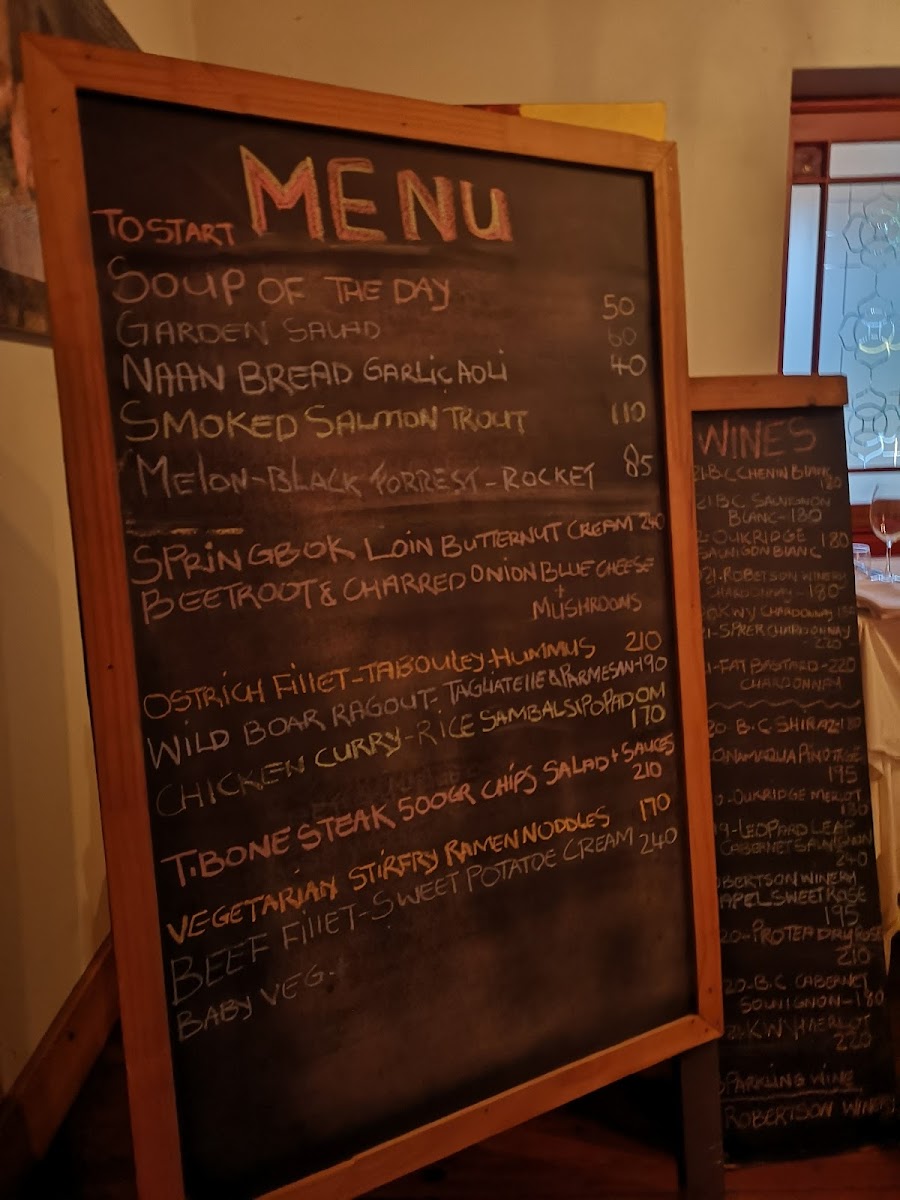 MENU
TO START
SOUP OF THE DAY 50
GARDEN SALAD 60
NAAN BREAD GARLIC AOLI 40
SMOKED SALMON TROUT 110
MELON-BLACK FORREST-ROCKET 85
SPRINGBOK LOIN BUTTERNUT CREAM 240
BEETROOT & CHARRED ONION BLUE CHEESE
+
MUSHROOMS
OSTRICH FILLET-TABOULEY-HUMMUS 210
WILD BOAR RAGOUT-TAGLIATELLE & PARMESAN-190
CHICKEN CURRY-RICE SAMBALS POPADOM
170
T.BONE STEAK 500GR CHIPS SALAD + SAUCES
210
VEGETARIAN STIRFRY RAMEN NOODLES 170
BEEF FILLET-SWEET POTATOE CREAM 240
BABY VEG.
WINES
21 B.C CHENIN BLANC
180
21 B.C SAUVIGNON
BLANC-180
OUKRIDGE 180
SAUVIGON BLANC
21.ROBETSON WINERY
CHARDONNAY-180
KWV CHARDONNAY
CHARDONNAY
220
FAT BASTARD-220
CHARDONNAY
20 B.C SHIRAZ-180
NAMAQUA PINOTAGE
195
OUKRIDGE MERLOT
180
19-LEOPARD LEAP
CABERNET SAUVIGNON
240
OBERTSON WINERY
APEL SWEET ROSE
195
20-PROTEA DRY ROSE
210
20-B.C CABERNET
SOUVIGNON-180
KWV MERLOT
220
SPARKLING WINE
ROBERTSON WINERY